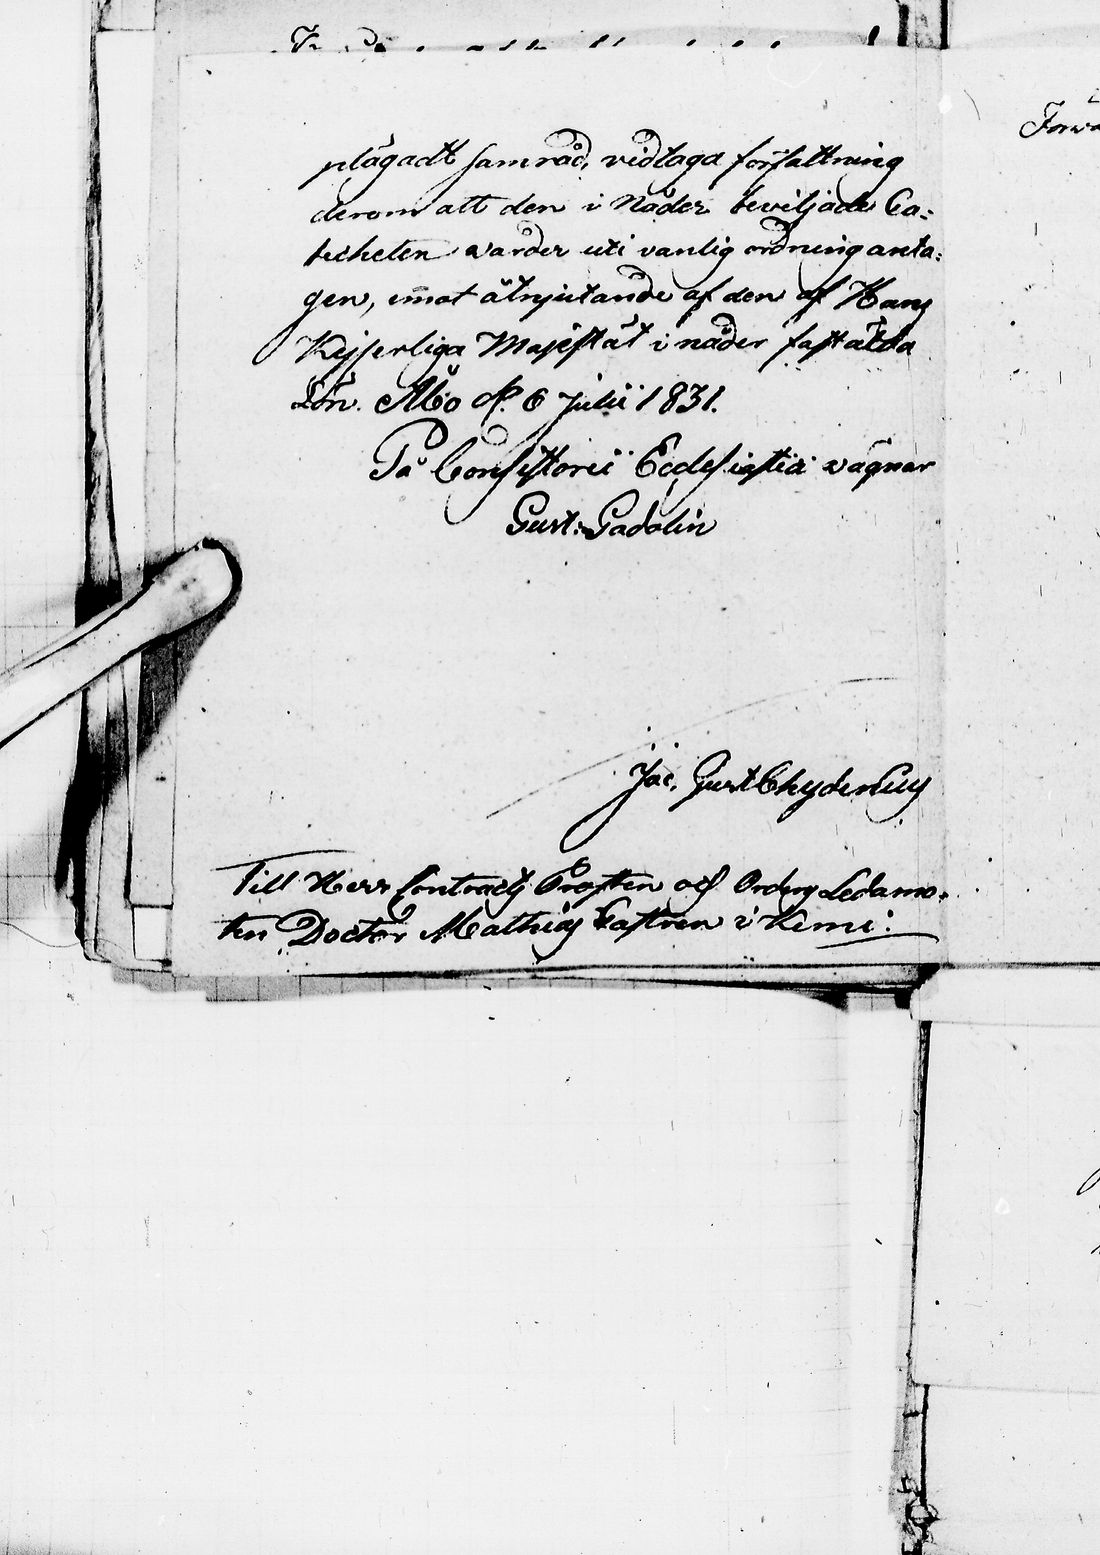 plägadt samråd, vidtaga författning
derom att den i Nåder beviljade Ca=
techeten warder uti vanlig ordning anta=
gen, emot åtnjutande af den af Hans
Kejserliga Majestät i nåder fastälda
Lön. Åbo d. 6 Julii 1831.
På Consistorii Ecclesiastici wägnar
Gust: Gadolin
Jac. Gust Chydenius
Till Herr Contracts Prosten och Ordens Ledamo=
ten Doctor Mathias Castren i Kemi.